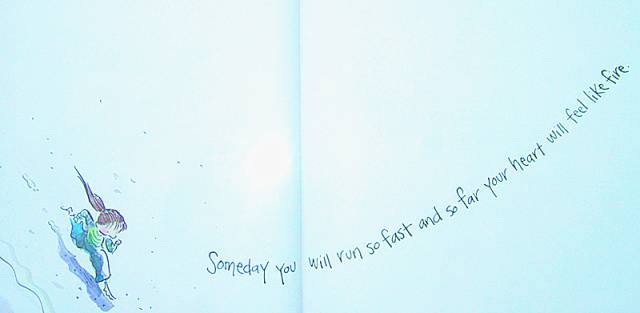 Someday you will run so fast and so far your heart will feel like fire.